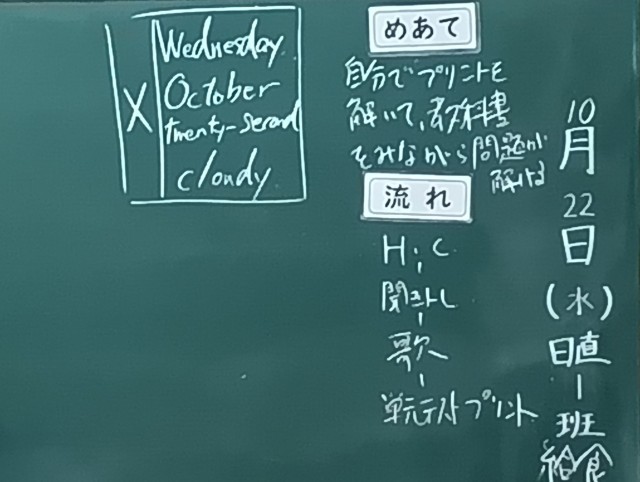 Wednesday
October
twenty-second
cloudy
X
めあて
自分でプリントを
解いて、教科書
をみながら問題が
解ける
流れ
H.C
聞きトレ
歌
単元テストプリント
10
月
22
日
(水)
日直
班
給食